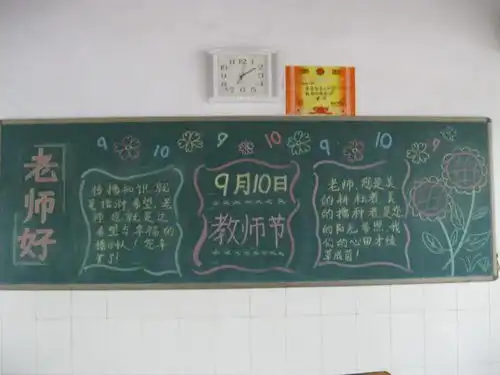 老师好
9
10
9
10
9
10
传播知识,就
是播种希望,是
种 就是
希望与幸福的
播种人!您辛
苦了!
9月10日
教师节
老师,您是美
的耕耘者,美
的播种者。是您
的阳光普照,我
们的心田才绿
草成茵!
12